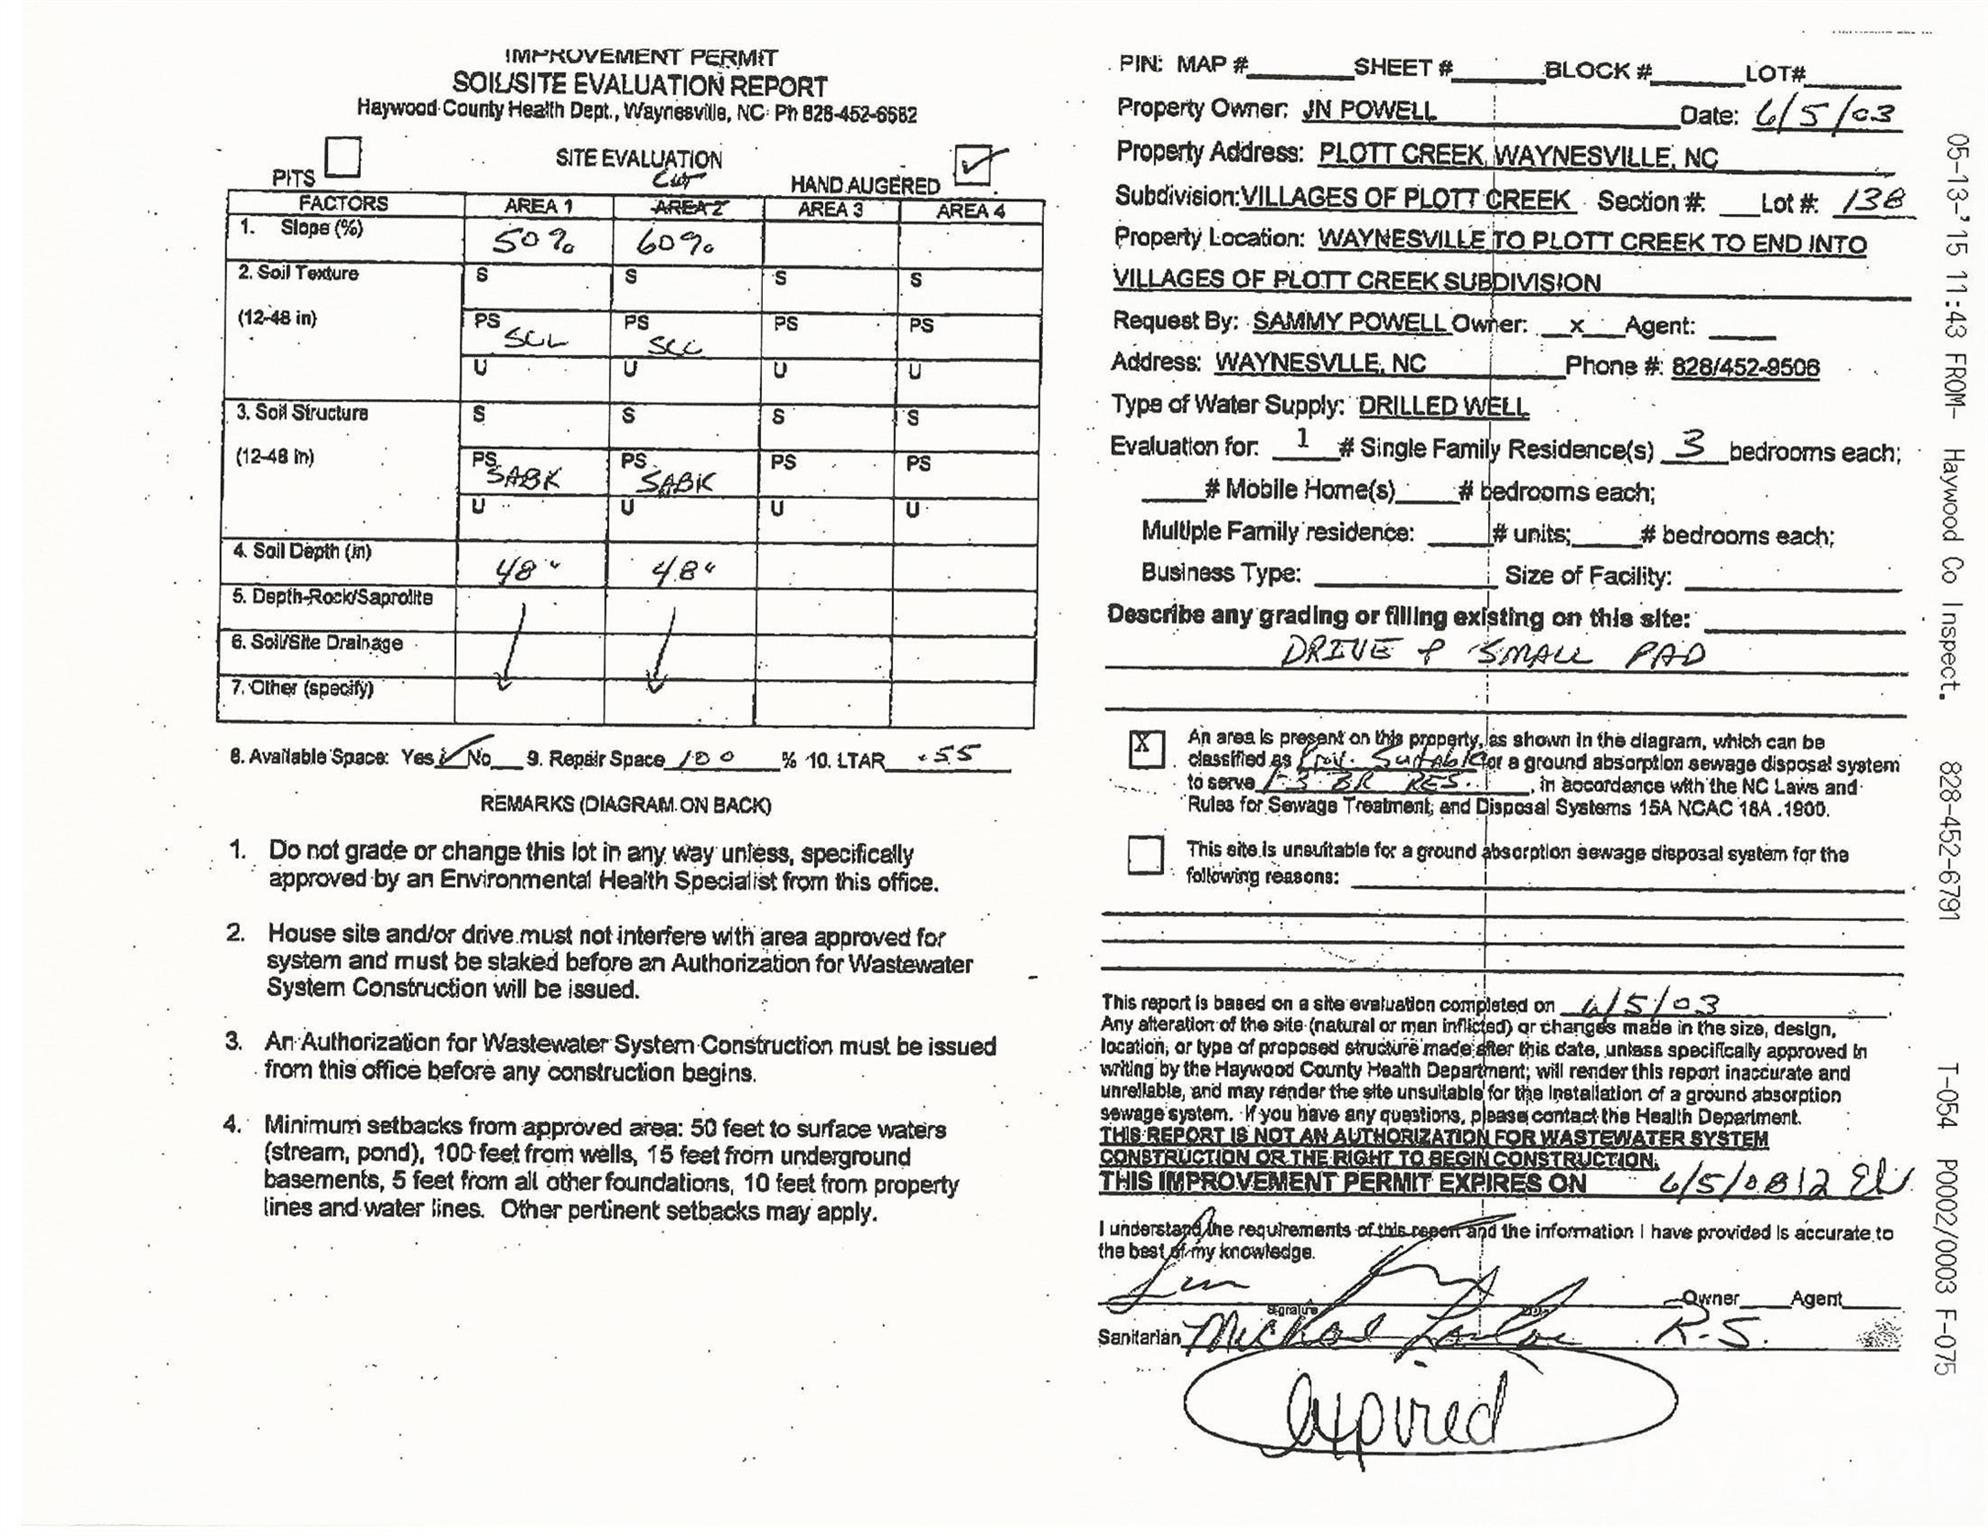 IMPROVEMENT PERMIT
SOIL/SITE EVALUATION REPORT
Haywood County Health Dept., Waynesville, NC Ph 828-452-6682
PITS
SITE EVALUATION
HAND AUGERED
Cut
FACTORS AREA 1 AREA 2 AREA 3 AREA 4
1. Slope (%) 50% 60%
2. Soil Texture S S S S
(12-48 in) PS PS PS PS
SCL SCL
U U U U
3. Soil Structure S S S S
(12-48 in) PS PS PS PS
SABK SABK
U U U U
4. Soil Depth (in) 48" 48"
5. Depth-Rock/Saprolite
6. Soil/Site Drainage
7. Other (specify)
8. Available Space: Yes ✓ No___ 9. Repair Space 100 % 10. LTAR .55
REMARKS (DIAGRAM ON BACK)
1. Do not grade or change this lot in any way unless, specifically
approved by an Environmental Health Specialist from this office.
2. House site and/or drive must not interfere with area approved for
system and must be staked before an Authorization for Wastewater
System Construction will be issued.
3. An Authorization for Wastewater System Construction must be issued
from this office before any construction begins.
4. Minimum setbacks from approved area: 50 feet to surface waters
(stream, pond), 100 feet from wells, 15 feet from underground
basements, 5 feet from all other foundations, 10 feet from property
lines and water lines. Other pertinent setbacks may apply.
PIN: MAP #______ SHEET #______ BLOCK #______ LOT#______
Property Owner: JN POWELL Date: 6/5/03
Property Address: PLOTT CREEK, WAYNESVILLE, NC
Subdivision: VILLAGES OF PLOTT CREEK Section #: ___ Lot #: 138
Property Location: WAYNESVILLE TO PLOTT CREEK TO END INTO
VILLAGES OF PLOTT CREEK SUBDIVISION
Request By: SAMMY POWELL Owner: x Agent: ____
Address: WAYNESVLLE, NC Phone #: 828/452-9506
Type of Water Supply: DRILLED WELL
Evaluation for: 1 # Single Family Residence(s) 3 bedrooms each;
____# Mobile Home(s)____# bedrooms each;
Multiple Family residence: ____# units;____# bedrooms each;
Business Type: ________ Size of Facility: ________
Describe any grading or filling existing on this site: ________
DRIVE & SMALL PAD
X An area is present on this property, as shown in the diagram, which can be
classified as Prov. Suitable for a ground absorption sewage disposal system
to serve 1-3 BR RES. , in accordance with the NC Laws and
Rules for Sewage Treatment, and Disposal Systems 15A NCAC 18A .1900.
This site is unsuitable for a ground absorption sewage disposal system for the
following reasons:
This report is based on a site evaluation completed on 6/5/03
Any alteration of the site (natural or man inflicted) or changes made in the size, design,
location, or type of proposed structure made after this date, unless specifically approved in
writing by the Haywood County Health Department; will render this report inaccurate and
unreliable, and may render the site unsuitable for the installation of a ground absorption
sewage system. If you have any questions, please contact the Health Department.
THIS REPORT IS NOT AN AUTHORIZATION FOR WASTEWATER SYSTEM
CONSTRUCTION OR THE RIGHT TO BEGIN CONSTRUCTION.
THIS IMPROVEMENT PERMIT EXPIRES ON 6/5/08
I understand the requirements of this report and the information I have provided is accurate to
the best of my knowledge.
Signature Owner____ Agent____
Sanitarian Michael R.S.
expired
05-13-'15 11:43 FROM- Haywood Co Inspect. 828-452-6791 T-054 P0002/0003 F-075